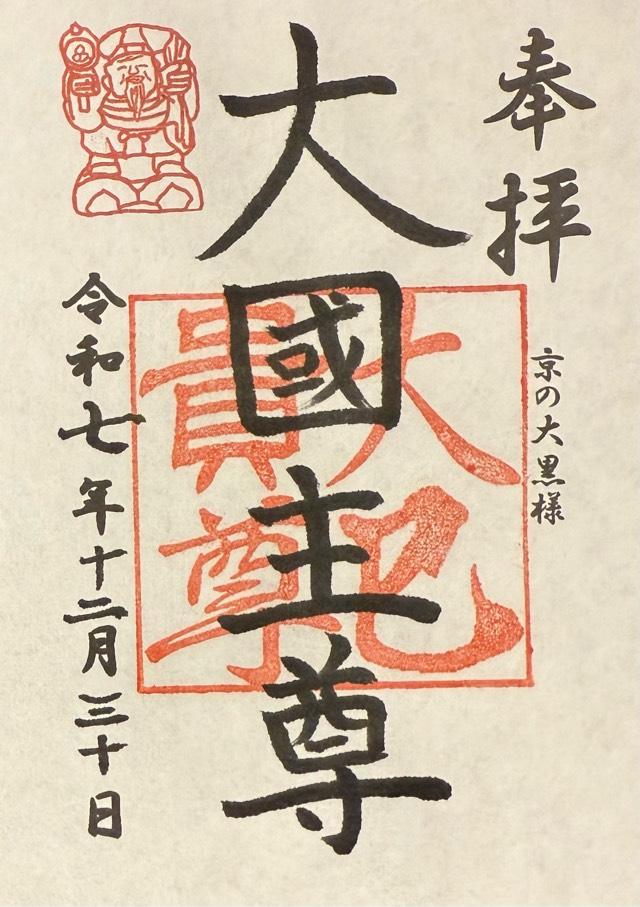 奉拝
京の大黒様
大國主尊
大己
貴尊
令和七年十二月三十日